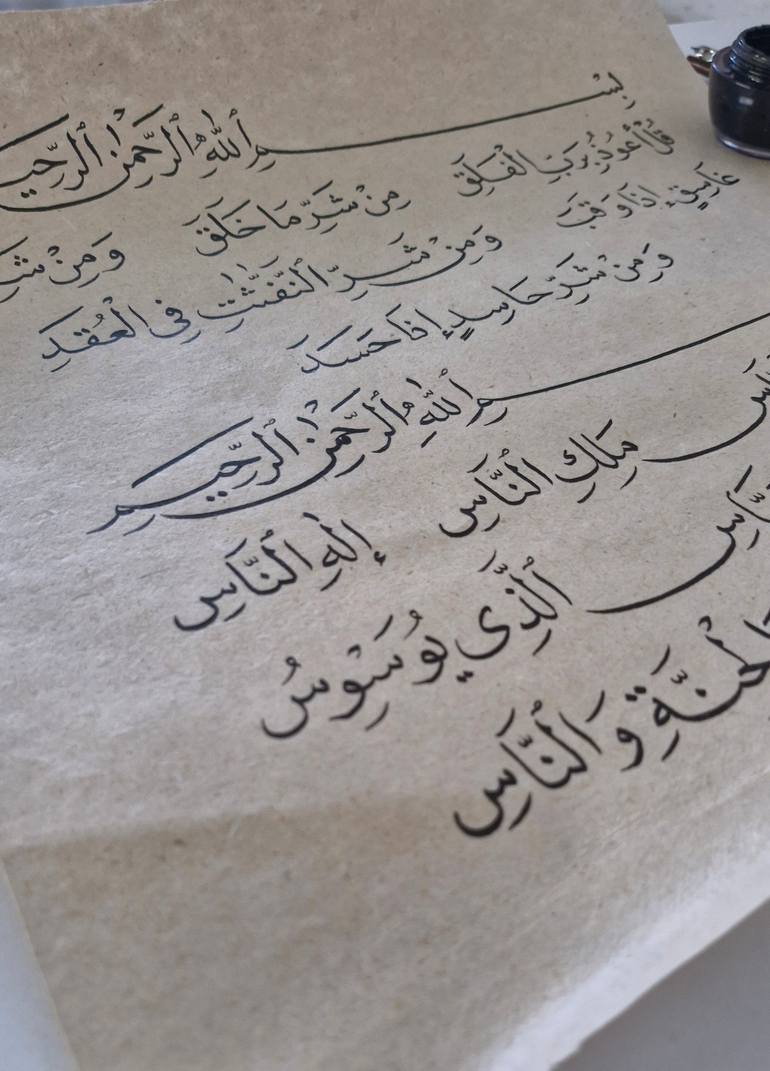 بِسْمِ ٱللَّهِ ٱلرَّحْمَٰنِ ٱلرَّحِي
قُلْ أَعُوذُ بِرَبِّ الْفَلَقِ مِنْ شَرِّ مَا خَلَقَ وَمِنْ شَ
غَاسِقٍ إِذَا وَقَبَ وَمِنْ شَرِّ النَّفَّٰثَٰتِ فِى الْعُقَدِ
وَمِنْ شَرِّ حَاسِدٍ إِذَا حَسَدَ
مِ ٱللَّهِ ٱلرَّحْمَٰنِ ٱلرَّحِيمِ
مَلِكِ النَّاسِ إِلَٰهِ ٱلنَّاسِ
ٱلَّذِى يُوَسْوِسُ
وَٱلنَّاسِ